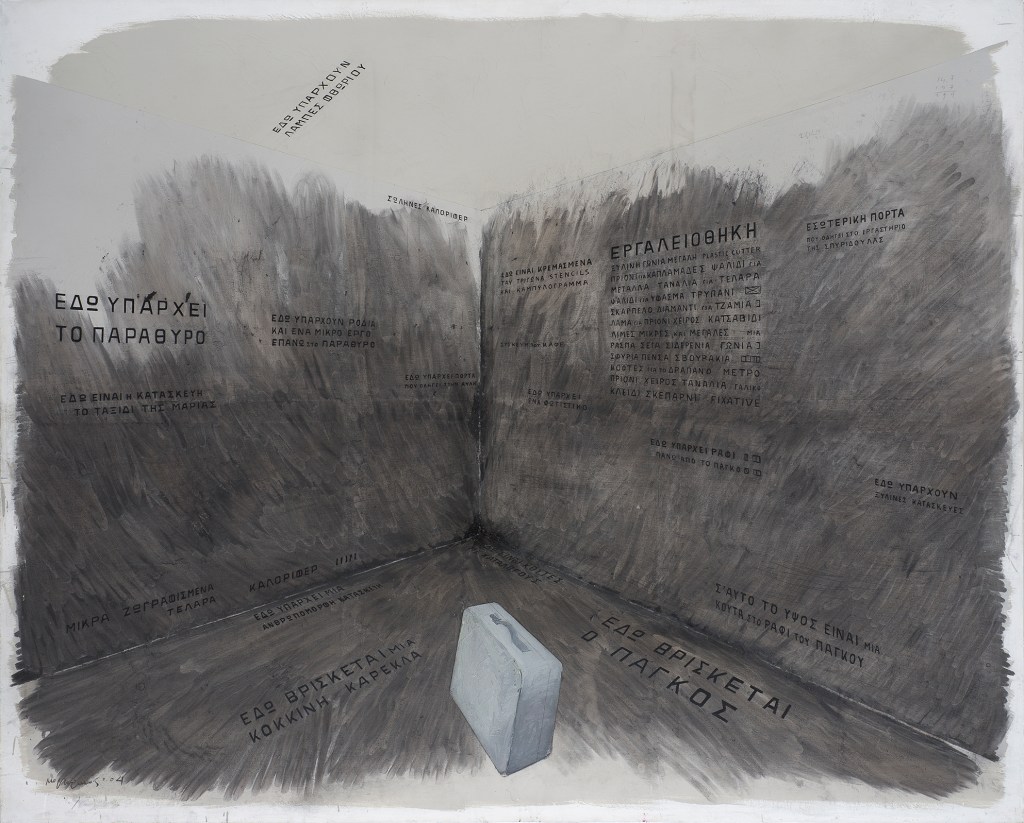 ΕΔΩ ΥΠΑΡΧΟΥΝ
ΛΑΜΠΕΣ ΦΘΩΡΙΟΥ
ΣΩΛΗΝΕΣ ΚΑΛΟΡΙΦΕΡ
ΕΔΩ ΥΠΑΡΧΕΙ
ΤΟ ΠΑΡΑΘΥΡΟ
ΕΔΩ ΥΠΑΡΧΟΥΝ ΡΟΔΙΑ
ΚΑΙ ΕΝΑ ΜΙΚΡΟ ΕΡΓΟ
ΕΠΑΝΩ ΣΤΟ ΠΑΡΑΘΥΡΟ
ΕΔΩ ΥΠΑΡΧΕΙ ΠΟΡΤΑ
ΕΔΩ ΕΙΝΑΙ Η ΚΑΤΑΣΚΕΥΗ
ΤΟ ΤΑΞΙΔΙ ΤΗΣ ΜΑΡΙΑΣ
ΕΔΩ ΕΙΝΑΙ ΚΡΕΜΑΣΜΕΝΑ
ΤΑ ΤΡΙΓΩΝΑ STENCILS
ΚΑΙ ΚΑΜΠΥΛΟΓΡΑΜΜΑ
ΕΔΩ ΥΠΑΡΧΕΙ
ΕΡΓΑΛΕΙΟΘΗΚΗ
ΞΥΛΙΝΗ ΓΩΝΙΑ ΜΕΓΑΛΗ PLASTIC CUTTER
ΠΡΙΟΝΙ ΓΙΑ ΚΑΠΛΑΜΑΔΕΣ ΨΑΛΙΔΙ ΓΙΑ
ΜΕΤΑΛΛΑ ΤΑΝΑΛΙΑ ΓΙΑ ΤΕΛΑΡΑ
ΨΑΛΙΔΙ ΓΙΑ ΥΦΑΣΜΑ ΤΡΥΠΑΝΙ
ΣΚΑΡΠΕΛΟ ΔΙΑΜΑΝΤΙ ΓΙΑ ΤΖΑΜΙΑ
ΛΑΜΑ ΓΙΑ ΠΡΙΟΝΙ ΧΕΙΡΟΣ ΚΑΤΣΑΒΙΔΙ
ΛΙΜΕΣ ΜΙΚΡΕΣ ΚΑΙ ΜΕΓΑΛΕΣ ΜΙΑ
ΡΑΣΠΑ ΣΕΓΑ ΣΙΔΕΡΕΝΙΑ ΓΩΝΙΑ
ΣΦΥΡΙΑ ΠΕΝΣΑ ΣΒΟΥΡΑΚΙΑ
ΚΟΦΤΕΣ ΓΙΑ ΤΟ ΔΡΑΠΑΝΟ ΜΕΤΡΟ
ΠΡΙΟΝΙ ΧΕΙΡΟΣ ΤΑΝΑΛΙΑ ΓΑΛΛΙΚΟ
ΚΛΕΙΔΙ ΣΚΕΠΑΡΝΙ FIXATIVE
ΕΣΩΤΕΡΙΚΗ ΠΟΡΤΑ
ΠΟΥ ΟΔΗΓΕΙ ΣΤΟ ΕΡΓΑΣΤΗΡΙΟ
ΤΗΣ ΣΠΥΡΙΔΟΥΛΑΣ
ΕΔΩ ΥΠΑΡΧΕΙ ΡΑΦΙ
ΠΑΝΩ ΑΠΟ ΤΟ ΠΑΓΚΟ
ΕΔΩ ΥΠΑΡΧΟΥΝ
ΞΥΛΙΝΕΣ ΚΑΤΑΣΚΕΥΕΣ
ΜΙΚΡΑ ΖΩΓΡΑΦΙΣΜΕΝΑ
ΤΕΛΑΡΑ
ΚΑΛΟΡΙΦΕΡ
ΕΔΩ ΥΠΑΡΧΕΙ ΜΙΑ
ΑΝΘΡΩΠΟΜΟΡΦΗ ΚΑΤΑΣΚΕΥΗ
Σ'ΑΥΤΟ ΤΟ ΥΨΟΣ ΕΙΝΑΙ ΜΙΑ
ΚΟΥΤΑ ΣΤΟ ΡΑΦΙ ΤΟΥ ΠΑΓΚΟΥ
ΕΔΩ ΒΡΙΣΚΕΤΑΙ ΜΙΑ
ΚΟΚΚΙΝΗ ΚΑΡΕΚΛΑ
ΕΔΩ ΒΡΙΣΚΕΤΑΙ
Ο ΠΑΓΚΟΣ